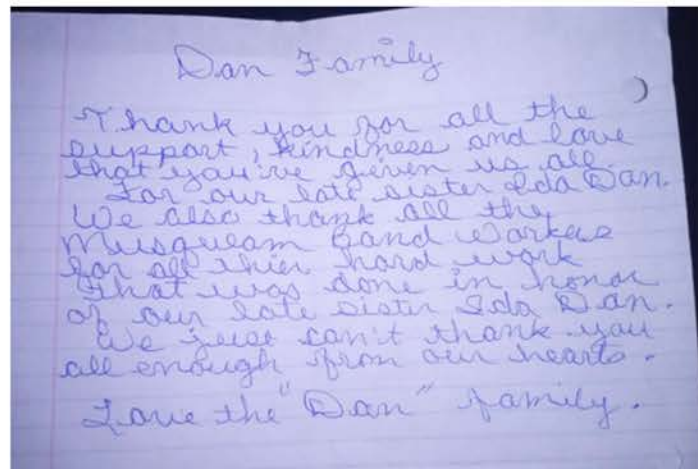 Dan Family
Thank you for all the
support, kindness and love
that you've given us all.
For our late sister Ida Dan.
We also thank all the
Musqueam Band Workers
for all thier hard work
that was done in honor
of our late sister Ida Dan.
We just can't thank you
all enough from our hearts.
Love the "Dan" family.